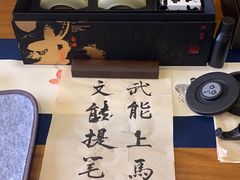 武能上馬
文能提笔